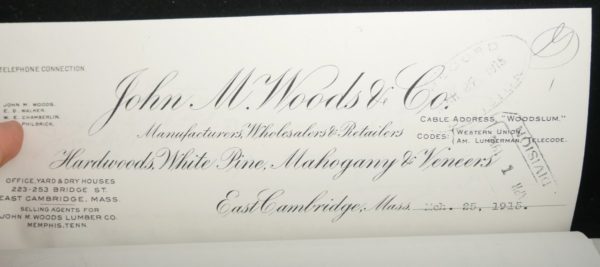 TELEPHONE CONNECTION
JOHN M. WOODS.
E. D. WALKER.
W. E. CHAMBERLIN.
PHILBRICK.
John M. Woods & Co.
CABLE ADDRESS, "WOODSLUM."
Manufacturers, Wholesalers & Retailers
CODES: WESTERN UNION, AM. LUMBERMAN, TELECODE.
Hardwoods, White Pine, Mahogany & Veneers
OFFICE, YARD & DRY HOUSES
223-253 BRIDGE ST.
EAST CAMBRIDGE, MASS.
SELLING AGENTS FOR
JOHN M. WOODS LUMBER CO.
MEMPHIS, TENN.
East Cambridge, Mass. Mch. 25, 1915.